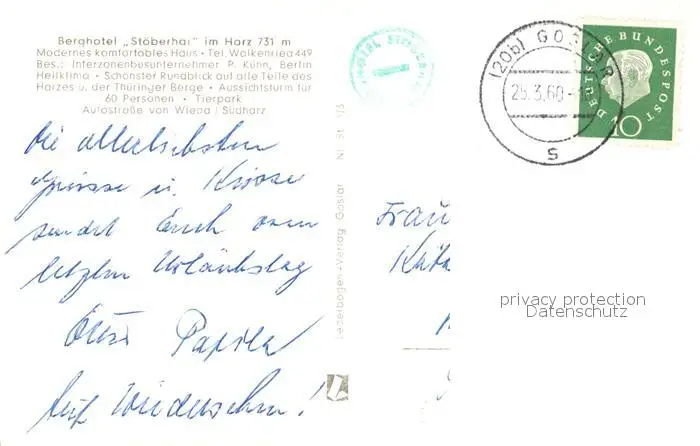 Berghotel „Stöberhai“ im Harz 731 m
Modernes komfortables Haus • Tel. Walkenried 449
Bes.: Interzonenbusunternehmer P. Kühn, Berlin
Heilklima • Schönster Rundblick auf alle Teile des
Harzes u. der Thüringer Berge • Aussichtsturm für
60 Personen • Tierpark
Autostraße von Wieda / Südharz
Die allerliebsten
Grüsse u. Küsse
sendet Euch vom
letzten Urlaubstag
Euer
Auf Wiedersehn!
Lederbogen-Verlag Goslar
Nr. St. 7/3
(20b) GOSLAR
3.60
s
DEUTSCHE BUNDESPOST
10
Frau
privacy protection
Datenschutz